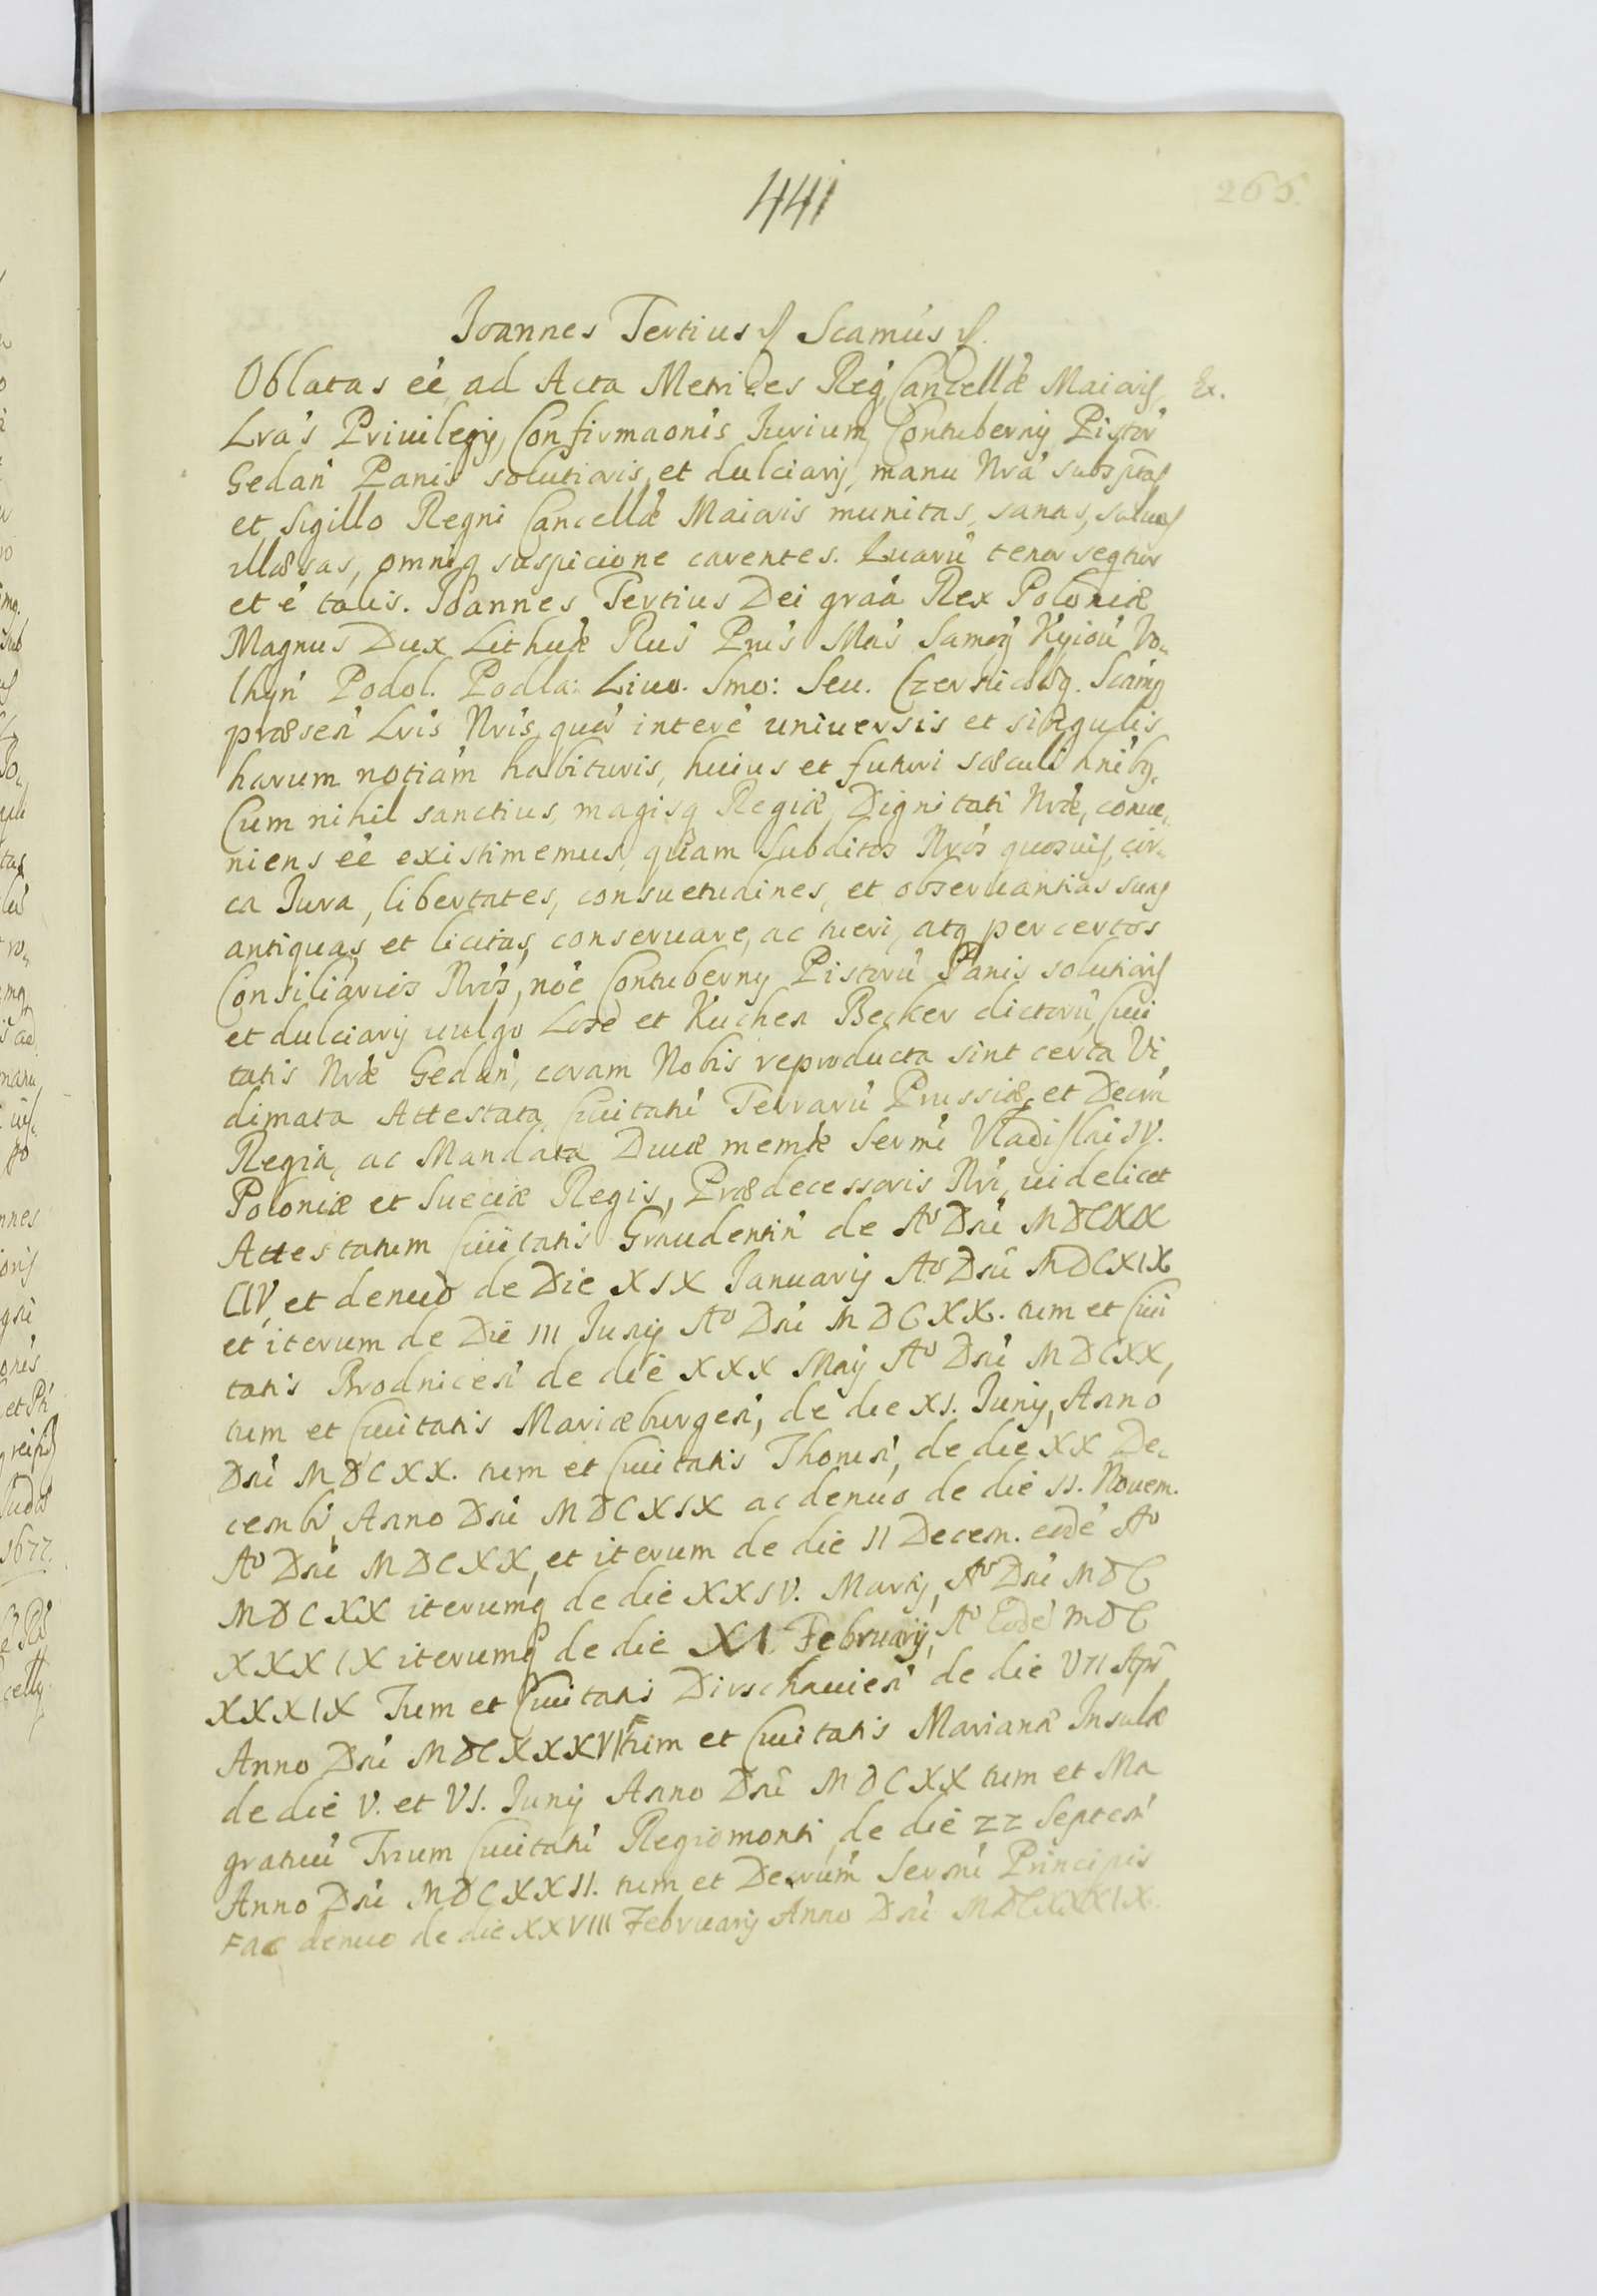 441
265.
Joannes Tertius Scamus
Oblatas eé ad Acta Metrices Reg Cancellæ Maioris Ex.
Lra's Priuilegij, Confirmaonis Jurium Contubernij Pistor
Gedan Panis solutioris, et dulciarij, manu Nra subsptas
et Sigillo Regni Cancellæ Maioris munitas, sanas, saluas
illæsas, omniq suspicione carentes. Quarú tenor seqtur
et é talis. Joannes Tertius Dei graá Rex Poloniæ
Magnus Dux Lithuæ Rus Prus Mas Samog Kyiou Vo„
lhyn Podol. Podla: Liuo. Smo: Seu. Czerniechoq. Scamq
præsen Lris Nris, quor interé uniuersis et singulis
harum notiam habituris, huius et futuri sæculi hnibq.
Cum nihil sanctius, magisq Regiæ Dignitati Nræ, conue„
niens eé existimemus, quam Subditos Nros quosuis, cir„
ca Jura, libertates, consuetudines, et obseruantias suas
antiquas et licitas, conseruare, ac tueri, atq per certos
Consiliarios Nros, noé Contubernij Pistorú Panis solutioris
et dulciarij uulgo Lose et Kuchen Becker dictorú, Ciui
tatis Nræ Gedan, coram Nobis reproducta sint certa Vi
dimata Attestata Ciuitatú Terrarú Prussiæ, et Decra
Regia, ac Mandata Diuæ memiæ Sermi Vladislai IV.
Poloniæ et Sueciæ Regis, Prædecessoris Nri, uidelicet
Attestatum Ciuitatis Graudentin de Ao Dni MDCXIX
CIV, et denuo de Die XIX Januarij Ao Dni MDCXIX
et iterum de Die III Junij Ao Dni MDCXX. tum et Ciui
tatis Brodnicen de die XXX Maij Ao Dni MDCXX,
tum et Ciuitatis Mariæburgen, de die XI. Junij, Anno
Dni MDCXX. tum et Ciuitatis Thorun, de die XX De„
cembr Anno Dni MDCXIX ac denuo de die II. Nouem.
Ao Dni MDCXX, et iterum de die II Decem. eodé Ao
MDCXX iterumq de die XXIV. Martij, Ao Dni MDC
XXXIX iterumq de die XI. Februarij, Ao Eodé MDC
XXXIX Tum et Ciuitatis Dirschauien de die VII Apr
Anno Dni MDCXXXVI tum et Ciuitatis Marianæ Insulæ
de die V. et VI. Junij Anno Dni MDCXX tum et Ma
gratuú Trium Ciuitatú Regiomonti de die 22 Septem
Anno Dni MDCXXII. tum et Decrum Sermi Principis
F ac denuo de die XXVIII Februarij Anno Dni MDCXXXIX.